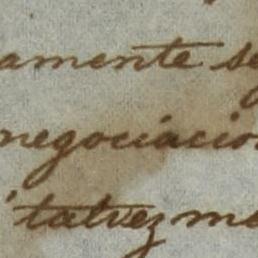 amente se
negociacio
talvez me